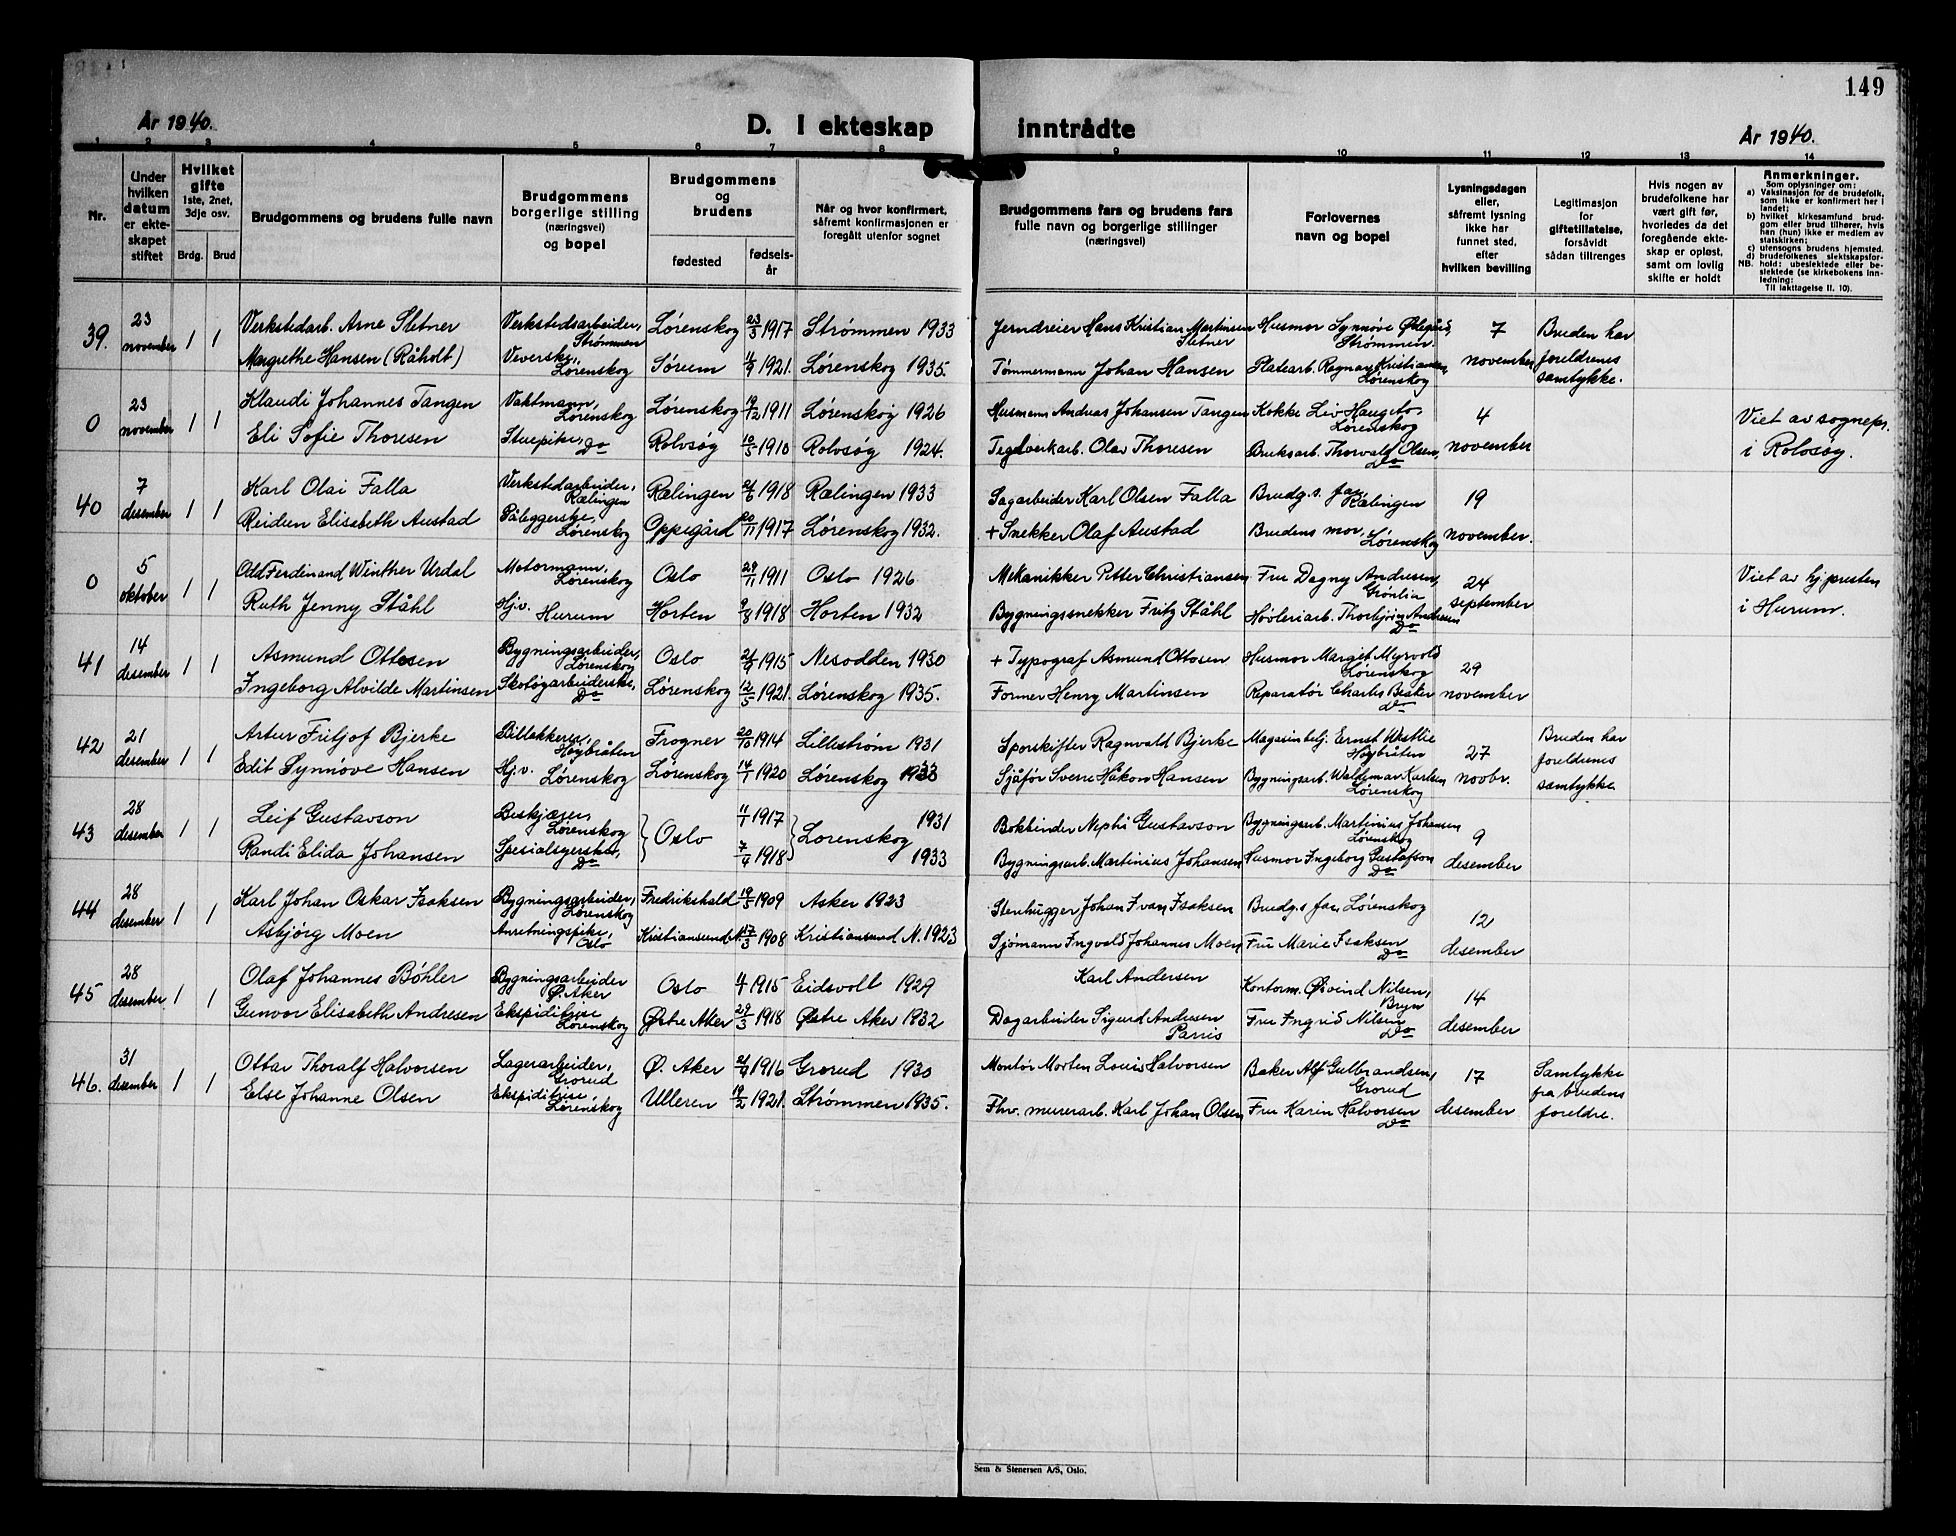 149
År 1940.
D. I ekteskap inntrådte
År 1940.
1 2 3 4 5 6 7 8 9 10 11 12 13 14
Nr.
Under hvilken datum er ekteskapet stiftet
Hvilket gifte 1ste, 2net, 3dje osv.
Brdg. Brud
Brudgommens og brudens fulle navn
Brudgommens borgerlige stilling (næringsvei) og bopel
Brudgommens og brudens
fødested
fødselsår
Når og hvor konfirmert, såfremt konfirmasjonen er foregått utenfor sognet
Brudgommens fars og brudens fars fulle navn og borgerlige stillinger (næringsvei)
Forlovernes navn og bopel
Lysningsdagen eller, såfremt lysning ikke har funnet sted, efter hvilken bevilling
Legitimasjon for giftetillatelse, forsåvidt sådan tiltrenges
Hvis nogen av brudefolkene har vært gift før, hvorledes da det foregående ekteskap er opløst, samt om lovlig skifte er holdt
Anmerkninger.
Som oplysninger om:
a) Vaksinasjon for de brudefolk, som ikke er konfirmert her i landet;
b) hvilket kirkesamfund brudgom eller brud tilhører, hvis han (hun) ikke er medlem av statskirken;
c) utensogns brudens hjemsted.
d) brudefolkenes slektskapsforhold: ubeslektede eller beslektede (se kirkebokens innledning:
NB. Til iakttagelse II. 10).
39. 23 november 1 1 Verkstedarb. Arne Sletner Verkstedsarbeider, Strømmen Lørenskog 23/3 1917 Strømmen 1933 Jerndreier Hans Kristian Martinsen Sletner Husmor Synnøve Ødegård, Strømmen. 7 november Bruden har foreldrenes samtykke.
Margrethe Hansen (Råholt) Veverske, Lørenskog Sørum 1921. Lørenskog 1935. Tømmermann Johan Hansen Platearb. Ragnar Kristiansen Lørenskog
0 23 november 1 1 Klaudi Johannes Tangen Vaktmann, Lørenskog Lørenskog 19/12 1911 Lørenskog 1926 Husmann Andreas Johansen Tangen Kokke Liv Haugsto, Lørenskog 4 november Viet av sognepr. i Rolvsøy.
Eli Sofie Thoresen Stuepike, Do Rolvsøy 10/5 1910 Rolvsøy 1924. Teglverkarb. Olav Thoresen Bruksarb. Thorvald Olsen, Do
40 7 desember 1 1 Karl Olai Falla Verkstedarbeider, Rælingen Rælingen 1918 Rælingen 1933 Sagarbeider Karl Olsen Falla Brudg.s far Rælingen 19 november.
Reidun Elisabeth Austad Påleggerske, Lørenskog Oppegård 20/11 1917 Lørenskog 1932. + Snekker Olaf Austad Brudens mor, Lørenskog
0 5 oktober 1 1 Odd Ferdinand Winther Urdal Motormann, Lørenskog Oslo 29/11 1911 Oslo 1926 Mekanikker Petter Christiansen Fru Dagny Andresen, Grønlia 24 september Viet av hj.presten i Hurum.
Ruth Jenny Ståhl Hj.v. Hurum Horten 9/8 1918 Horten 1932 Bygningssnekker Fritz Ståhl Høvleriarb. Thorbjørn Andresen Do
41 14 desember 1 1 Asmund Ottesen Bygningsarbeider, Lørenskog Oslo 1915 Nesodden 1930 + Typograf Asmund Ottosen Husmor Margit Myrvold Lørenskog 29 november
Ingeborg Alvilde Martinsen Skotøyarbeiderske, Do Lørenskog 12/5 1921. Lørenskog 1935. Former Henry Martinsen Reparatør Charles Do
42 21 desember 1 1 Artur Fritjof Bjerke Billakkerer, Høybråten Frogner 20/10 1914 Lillestrøm 1931 Sporskifter Ragnvald Bjerke Magasinbetj. Ernst Westlie Høybråten 27 novbr. Bruden har foreldrenes samtykke
Edit Synnøve Hansen Hj.v. Lørenskog Lørenskog 14/1 1920 Lørenskog 1933 Sjåfør Sverre Håkon Hansen Bygningsarb. Waldemar Karlsen Lørenskog
43 28 desember 1 1 Leif Gustavson Beskjærer, Lørenskog Oslo 11/1 1917 Lorenskog 1931 Bokbinder Nephi Gustavson Bygningsarb. Martinius Johansen Lørenskog 9 desember
Randi Elida Johansen Spesialsyerske, Do 7/4 1918 1933 Bygningsarb. Martinius Johansen Husmor Ingeborg Gustafson Do
44 28 desember 1 1 Karl Johan Oskar Isaksen Bygningsarbeider, Lørenskog Fredrikshald 19/5 1909 Asker 1923 Stenhugger Johan Ivan Isaksen Brudg.s far, Lørenskog 12 desember
Asbjørg Moen Anretningspike, Oslo Kristiansund N. 17/3 1908 Kristiansund N. 1923 Sjømann Ingvald Johannes Moen Fru Marie Isaksen Do
45 28 desember 1 1 Olaf Johannes Bøhler Bygningsarbeider Ø. Aker Oslo 1915 Eidsvoll 1929 Karl Andersen Kontorm. Øivind Nilsen, Bryn 14 desember
Gunvor Elisabeth Andresen Ekspeditrise Lørenskog Østre Aker 29/3 1918 Østre Aker 1932 Dagarbeider Sigurd Andresen Parris Fru Ingrid Nilsen Do
46. 31 desember 1 1 Ottar Thoralf Halvorsen Lagerarbeider, Grorud Ø. Aker 1916 Grorud 1930 Montør Morten Louis Halvorsen Baker Alf Gulbrandsen, Grorud 17 desember Samtykke fra brudens foreldre.
Else Johanne Olsen Ekspeditrise Lørenskog Ulleren 19/2 1921. Strømmen 1935. Fhv. murerarb. Karl Johan Olsen Fru Karin Halvorsen Do
Sem & Stenersen A/S, Oslo.